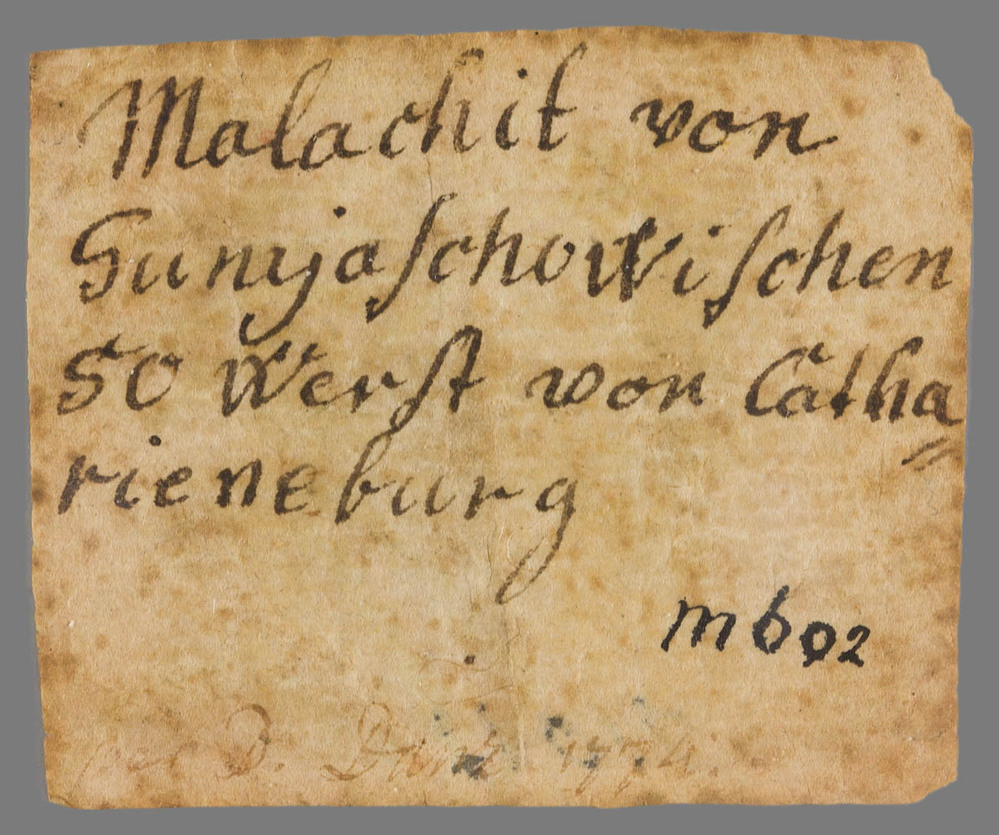 Malachit von
Gumjaſchowiſchen
50 Werſt von Catha=
rieneburg
m602
per D. 1774.